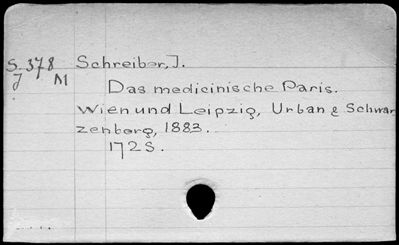 S 378 Schreiber, J.
J M
Das medicinische Paris.
Wien und Leipzig, Urban & Schwar
zenberg, 1883.
172 S.